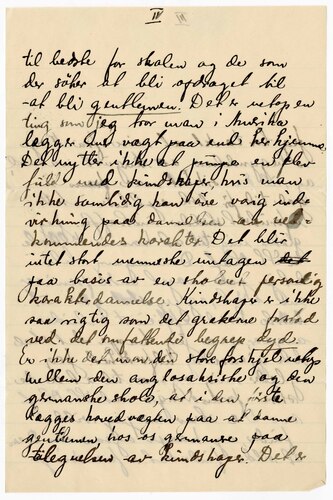 IV
til bedste for skolen og de som
der söker at bli opdraget til
- at bli gentlymen. Det er netop en
ting som jeg tror man i Amerika
lægger mer vægt paa end her hjemme.
Det nytter ikke at pumpe en elev
fuld med kundskaper hvis man
ikke samtidig kan öve varig ind-
virkning paa dannelsen av ved-
kommendes karakter. Det blir
intet stort menneske undtagen
paa basis av en skolert personlig
karakterdannelse. Kundskaper er ikke
saa vigtig som det grækerne forstod
ved det omfattende begrep dyd.
Er ikke det man den store forskjel netop
mellem den anglosaksiske og den
germanske skole, at i den
lægges hovedvægten paa at danne
gentlemen, hos os germaner paa
tilegnelsen av kundskaper. Det er